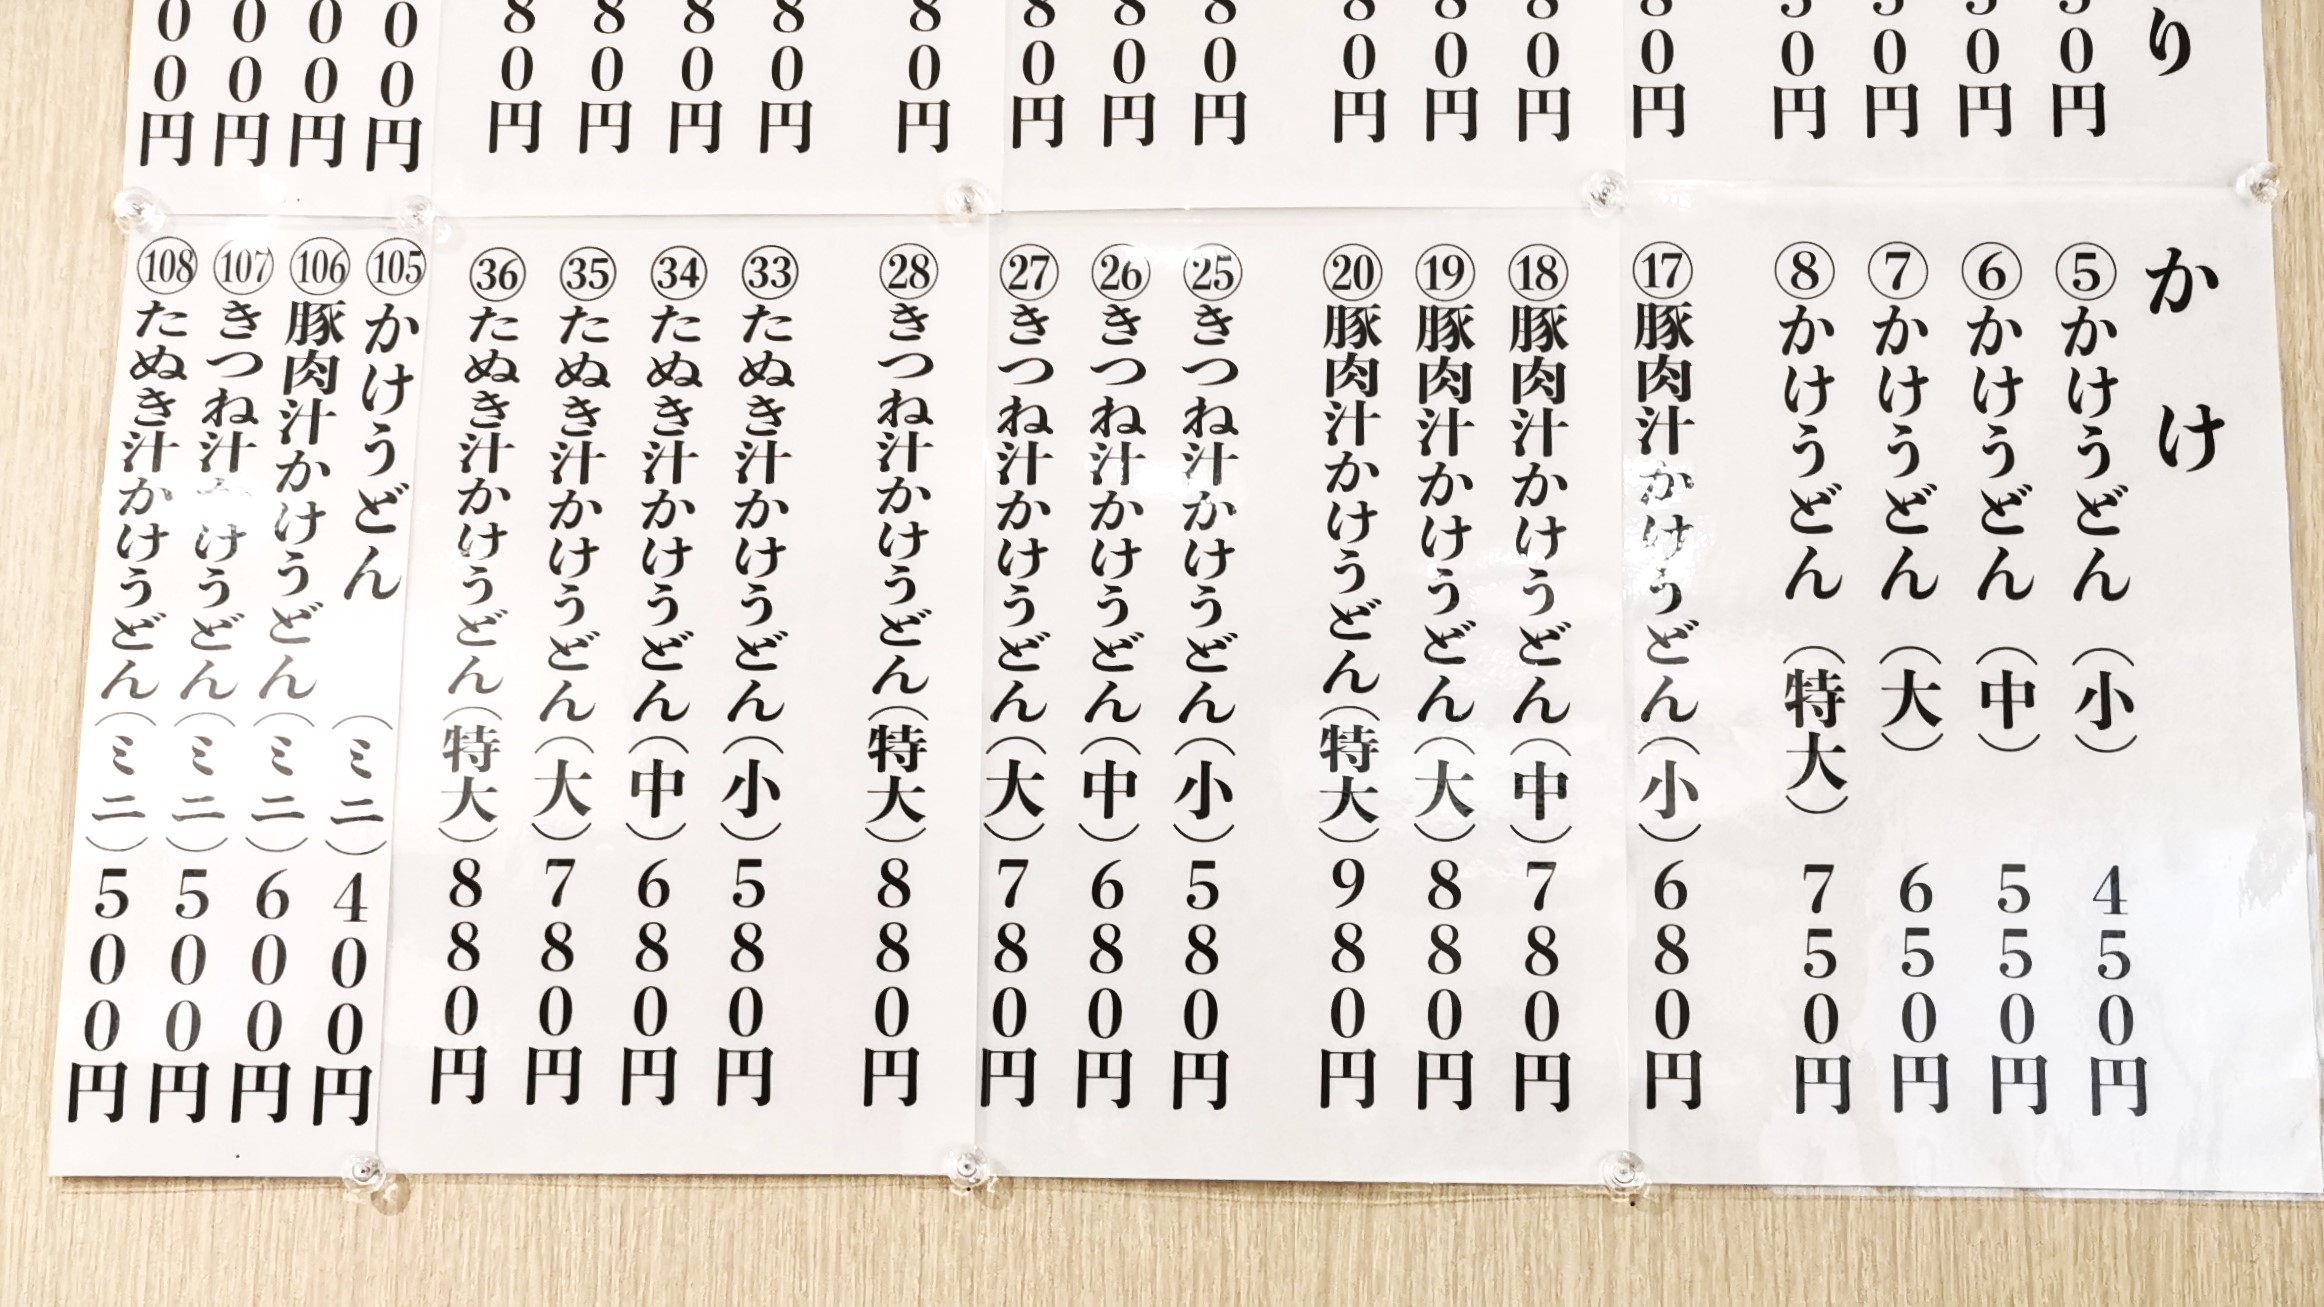 り
50円
50円
50円
50円
80円
80円
80円
80円
80円
80円
80円
80円
80円
80円
80円
80円
00円
00円
00円
00円
かけ
⑤かけうどん(小) 450円
⑥かけうどん(中) 550円
⑦かけうどん(大) 650円
⑧かけうどん(特大) 750円
⑰豚肉汁かけうどん(小) 680円
⑱豚肉汁かけうどん(中) 780円
⑲豚肉汁かけうどん(大) 880円
⑳豚肉汁かけうどん(特大) 980円
㉕きつね汁かけうどん(小) 580円
㉖きつね汁かけうどん(中) 680円
㉗きつね汁かけうどん(大) 780円
㉘きつね汁かけうどん(特大) 880円
㉝たぬき汁かけうどん(小) 580円
㉞たぬき汁かけうどん(中) 680円
㉟たぬき汁かけうどん(大) 780円
㊱たぬき汁かけうどん(特大) 880円
105かけうどん(ミニ) 400円
106豚肉汁かけうどん(ミニ) 600円
107きつね汁かけうどん(ミニ) 500円
108たぬき汁かけうどん(ミニ) 500円